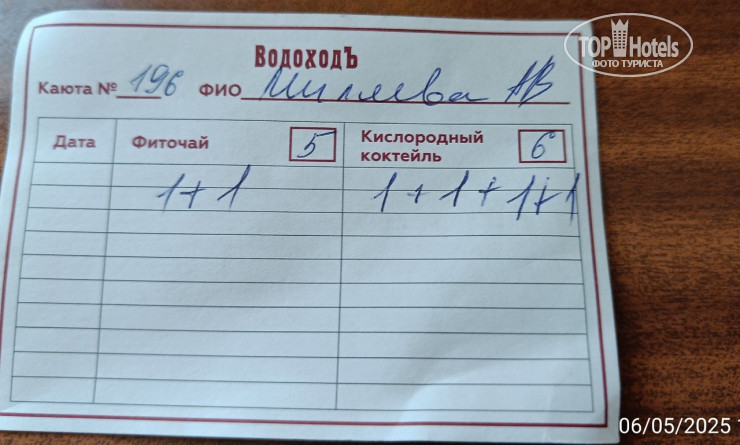 TOP Hotels
ФОТО ТУРИСТА
ВодоходЪ
Каюта № 196 ФИО АВ
Дата Фиточай 5 Кислородный коктейль 6
1+1 1+1+1+1
06/05/2025